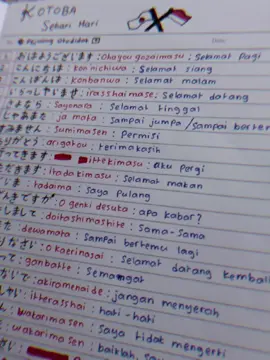 KOTOBA
Sehari Hari
おはようございます : Ohayou gozaimasu : Selamat Pagi
こんにちは : konnichiwa : Selamat siang
こんばんは : konbanwa : Selamat malam
いらっしゃいませ : irasshaimase : Selamat datang
さよなら : Sayonara : Selamat tinggal
じゃあまた : ja mata : Sampai jumpa / sampai
すみません : Sumimasen : Permisi
りがとう : arigatou : terimakasih
ってきます : ittekimasu : aku pergi
ただきます : itadakimasu : Selamat makan
いま : tadaima : Saya pulang
んきですか : O genki desuka : apa kabar?
しまして : doitashimashite : Sama-sama
た : dewamata : Sampai bertemu lagi
りなさい : Okaerinasai : Selamat datang kembali
って : ganbatte : Semangat
ないで : akiramenaide : jangan menyerah
しゃい : itterasshai : hati-hati
ん : wakarimasen : Saya tidak mengerti
: wakarimasen : baiklah, saya